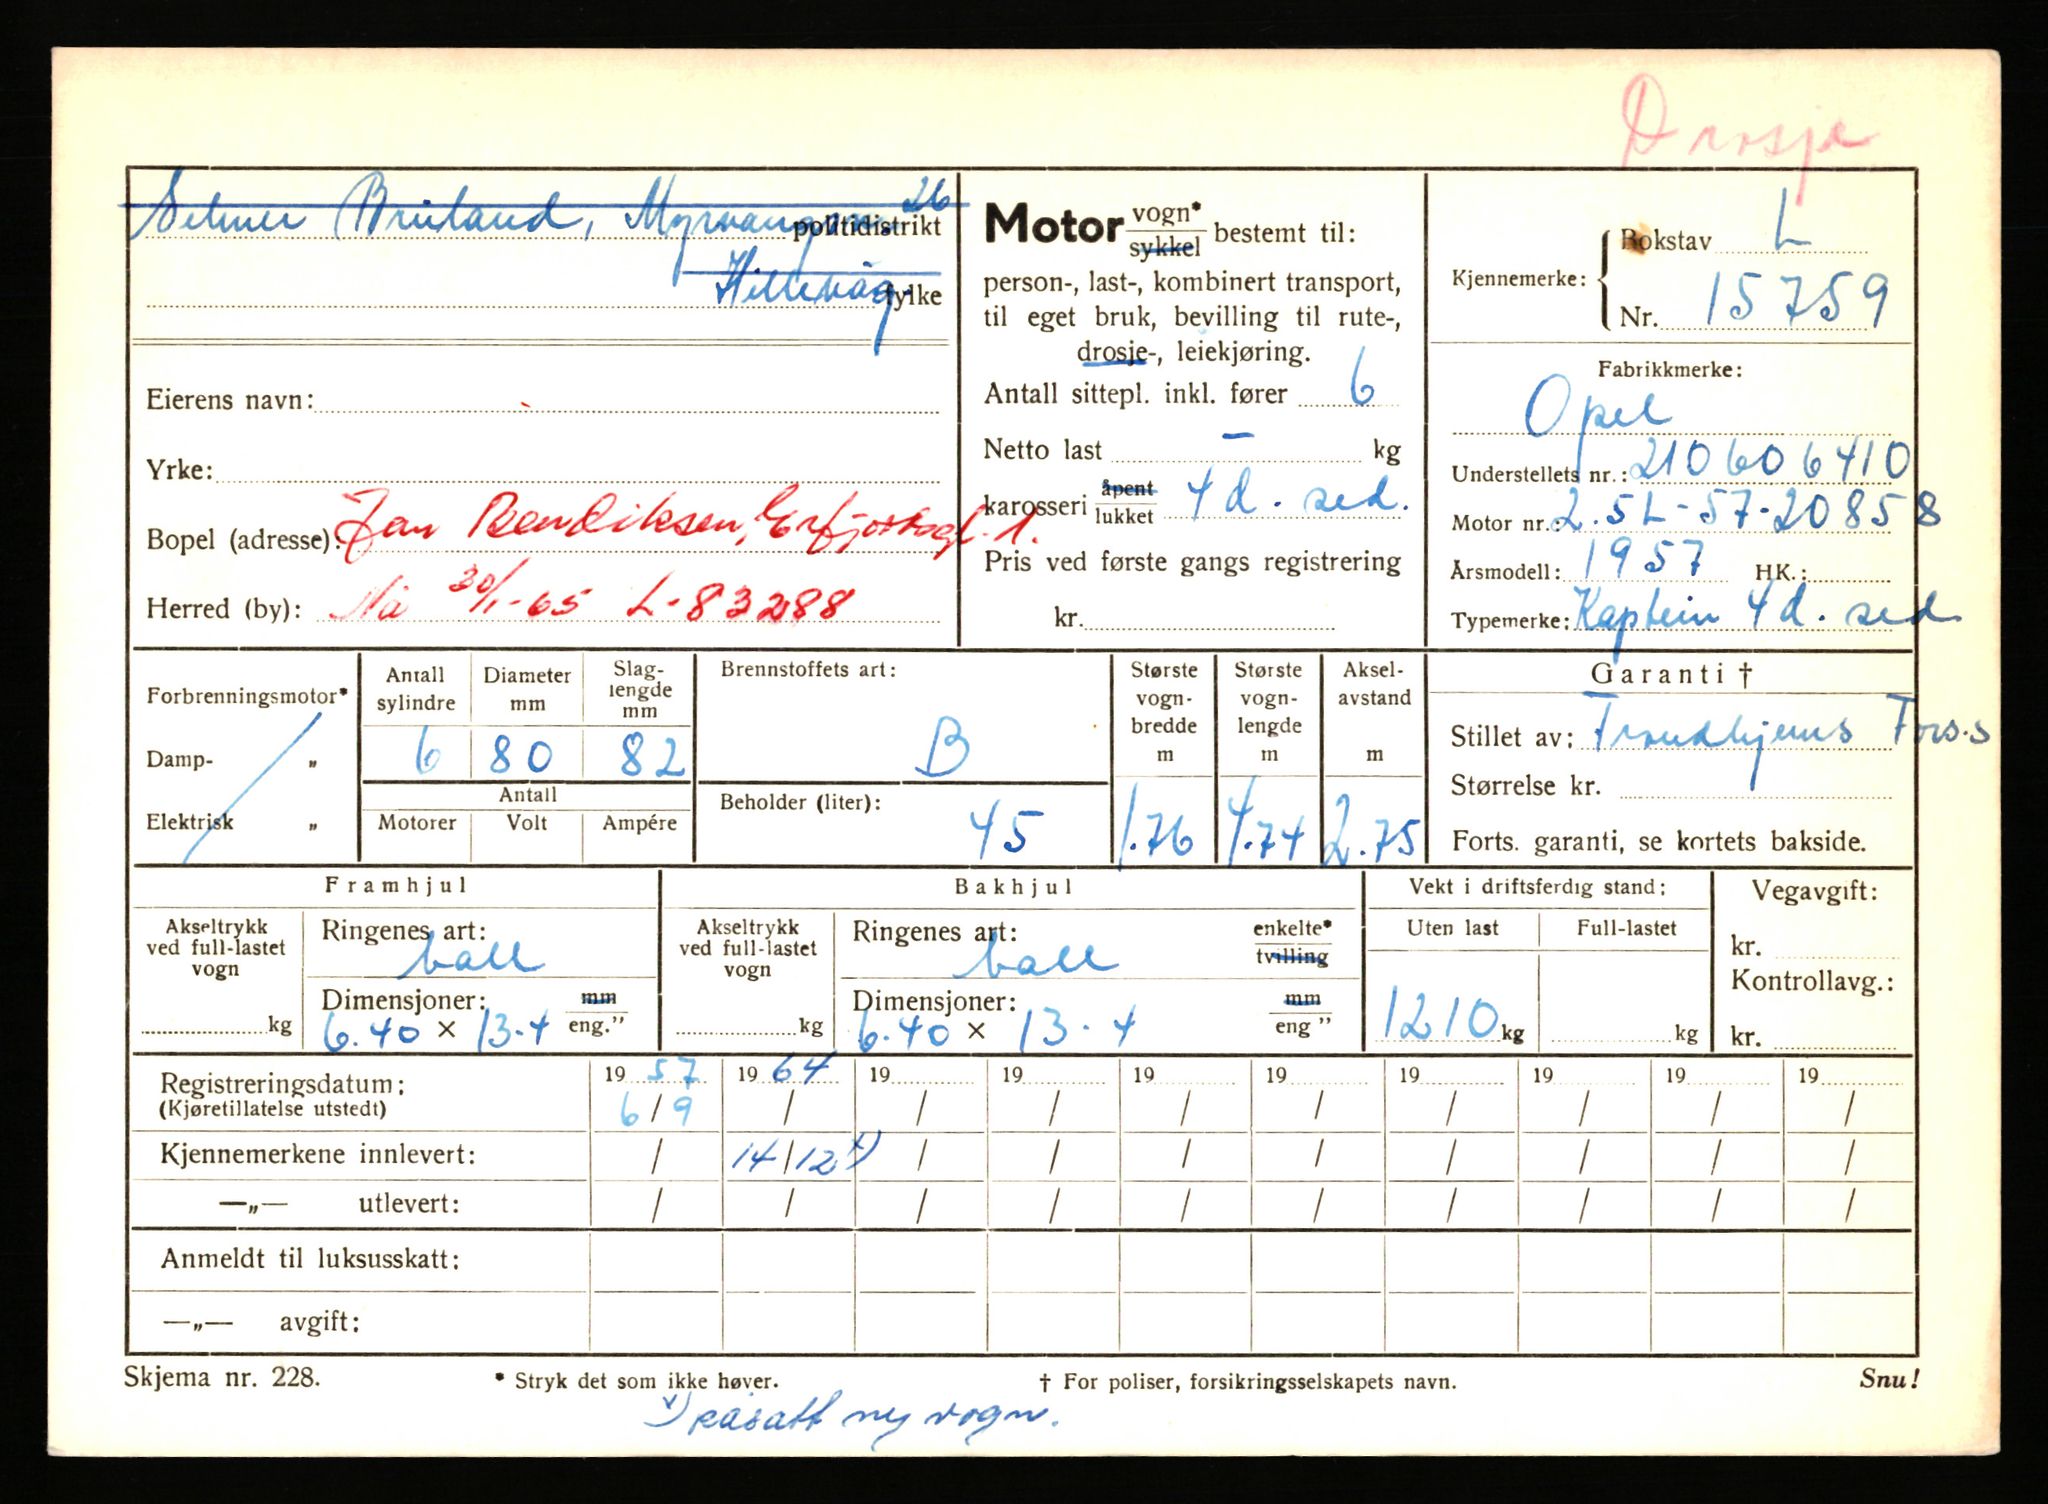 Drosje
Selmer Bruland, Myrvangvn. 26
politidistrikt
Hillevåg
fylke
Eierens navn:
Yrke:
Bopel (adresse): Jan Bendiksen, Erfjordsgt. 1.
Herred (by): Nå 30/1-65 L-83288
Motor vogn* sykkel bestemt til:
person-, last-, kombinert transport,
til eget bruk, bevilling til rute-,
drosje-, leiekjøring.
Antall sittepl. inkl. fører 6
Netto last – kg
karosseri åpent lukket 4 d. sed.
Pris ved første gangs registrering
kr.
Kjennemerke: Bokstav L
Nr. 15759
Fabrikkmerke:
Opel
Understellets nr.: 210606410
Motor nr.: 2.5L-57-20858
Årsmodell: 1957 HK.:
Typemerke: Kaptein 4 d. sed
Forbrenningsmotor*
Damp- „
Elektrisk „
Antall sylindre Diameter mm Slaglengde mm
6 80 82
Antall
Motorer Volt Ampére
Brennstoffets art:
B
Beholder (liter):
45
Største vognbredde m
1.76
Største vognlengde m
4.74
Akselavstand m
2.75
Garanti †
Stillet av: Trondhjems Fors.s
Størrelse kr.
Forts. garanti, se kortets bakside.
Framhjul
Akseltrykk ved full-lastet vogn
kg
Ringenes art:
ball
Dimensjoner: mm
6.40 × 13.4 eng."
Bakhjul
Akseltrykk ved full-lastet vogn
kg
Ringenes art: enkelte* tvilling
ball
Dimensjoner: mm
6.40 × 13.4 eng "
Vekt i driftsferdig stand:
Uten last Full-lastet
1210 kg kg
Vegavgift:
kr.
Kontrollavg.:
kr.
Registreringsdatum: 19 57 19 64 19 19 19 19 19 19 19 19
(Kjøretillatelse utstedt) 6/9 / / / / / / / / /
Kjennemerkene innlevert: / 14/12 x) / / / / / / / /
—„— utlevert: / / / / / / / / / /
Anmeldt til luksusskatt:
—„— avgift:
Skjema nr. 228. * Stryk det som ikke høver. † For poliser, forsikringsselskapets navn. Snu!
x) påsatt ny vogn.